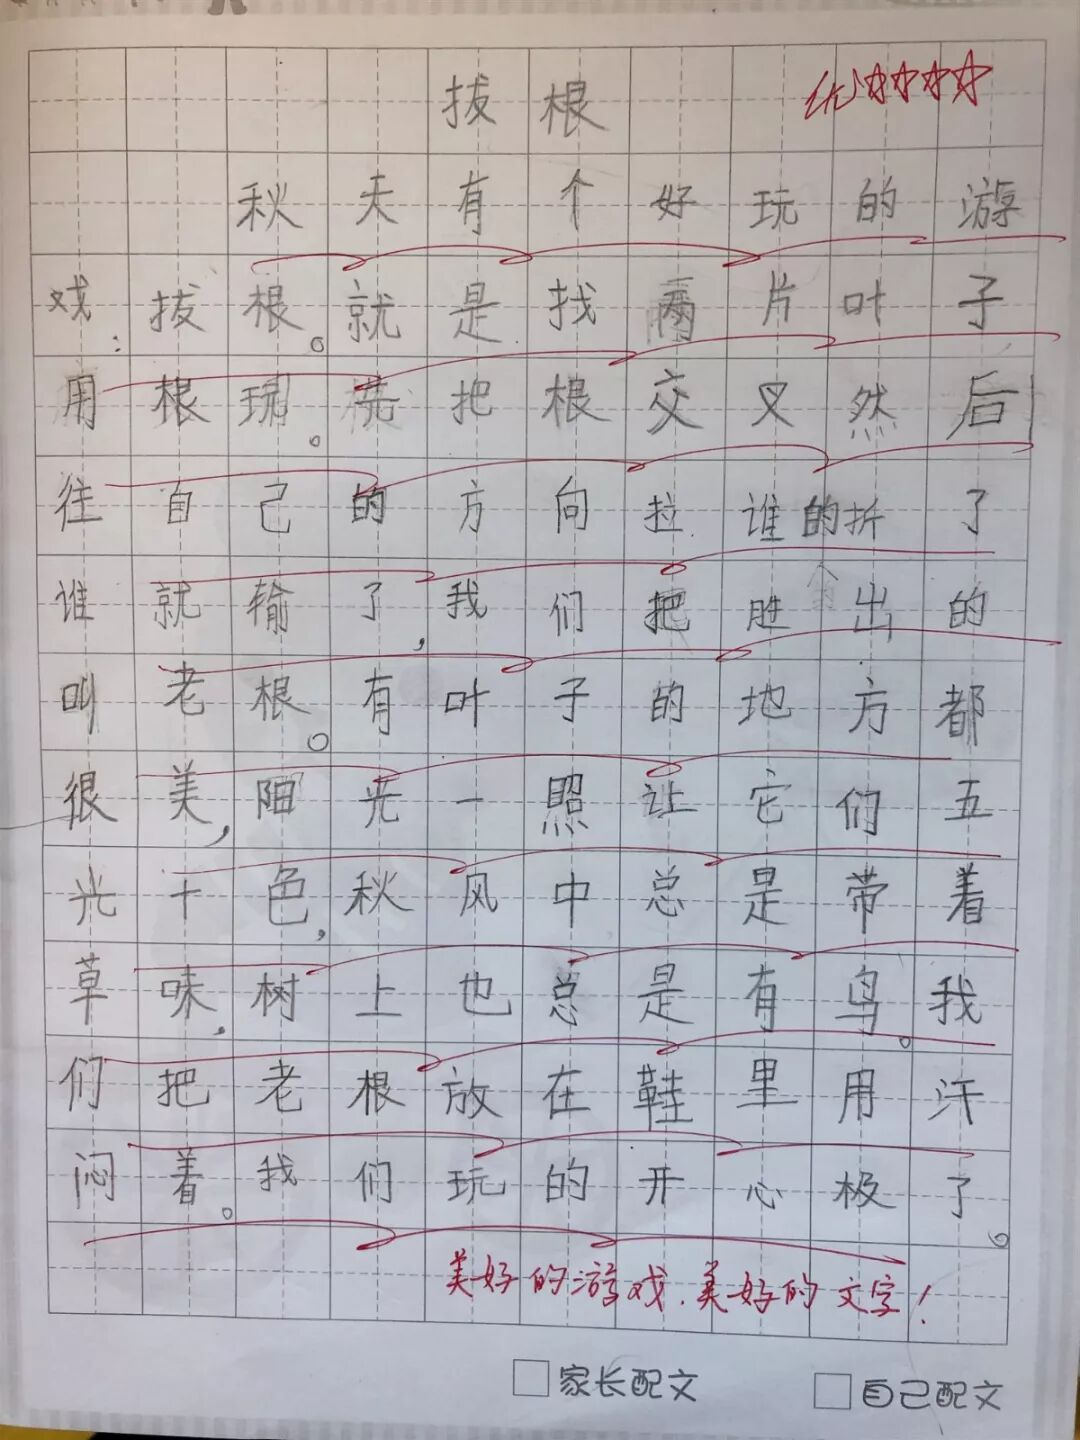 拔根
优☆☆☆☆
秋天有个好玩的游
戏:拔根。就是找两片叶子
用根玩。先把根交叉然后
往自己的方向拉谁的折了
谁就输了,我们把胜出的
叫老根。有叶子的地方都
很美,阳光一照让它们五
光十色,秋风中总是带着
草味,树上也总是有鸟。我
们把老根放在鞋里用汗
闷着。我们玩的开心极了。
美好的游戏.美好的文字!
家长配文
自己配文